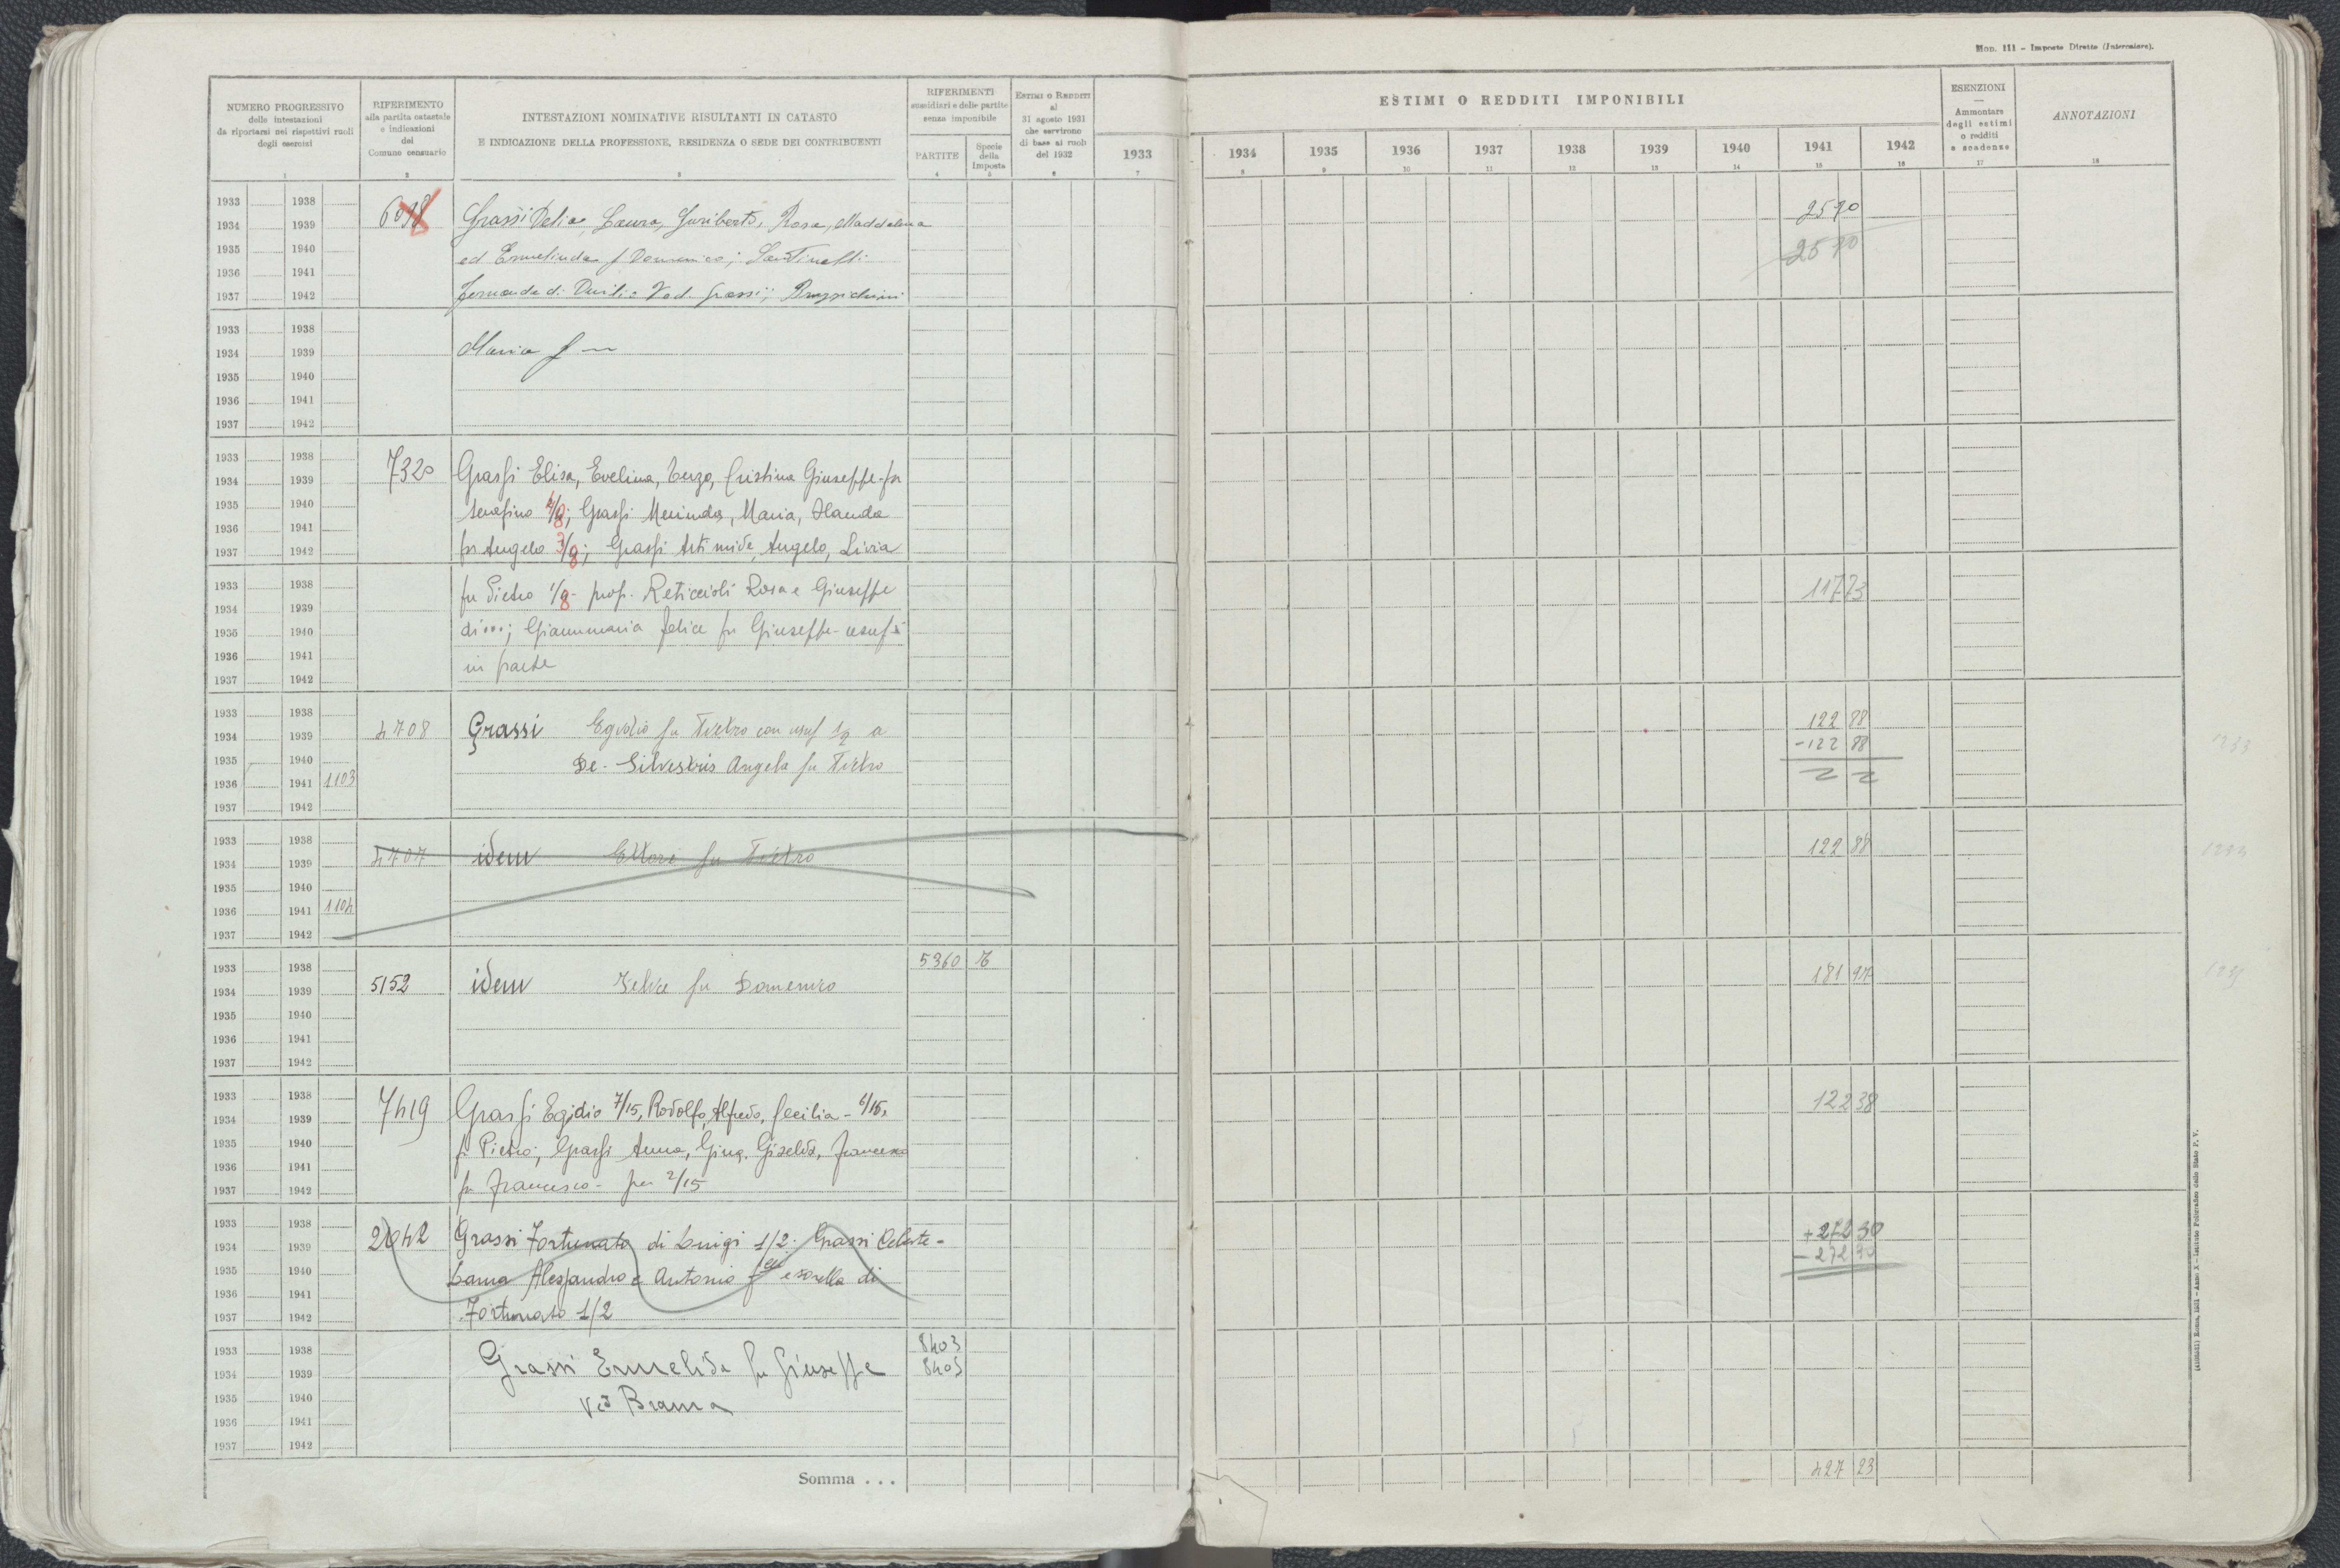 Mod. 111 – Imposte Dirette (Intercalare).
NUMERO PROGRESSIVO
delle intestazioni
da riportarsi nei rispettivi ruoli
degli esercizi
1
RIFERIMENTO
alla partita catastale
e indicazioni
del
Comune censuario
2
INTESTAZIONI NOMINATIVE RISULTANTI IN CATASTO
E INDICAZIONE DELLA PROFESSIONE, RESIDENZA O SEDE DEI CONTRIBUENTI
3
RIFERIMENTI
sussidiari e delle partite
senza imponibile
PARTITE
4
Specie
della
Imposta
5
ESTIMI O REDDITI
al
31 agosto 1931
che servirono
di base ai ruoli
del 1932
6
1933
7
ESTIMI O REDDITI IMPONIBILI
1934 1935 1936 1937 1938 1939 1940 1941 1942
8 9 10 11 12 13 14 15 16
ESENZIONI
—
Ammontare
degli estimi
o redditi
e scadenze
17
ANNOTAZIONI
18
1933 1938
1934 1939 6098 Grassi Delia, Laura, Guriberto, Rosa, Maddalena 25 70
1935 1940 ed Ermelinda f Domenico; Santinelli 25 70
1936 1941
1937 1942 Fernanda di Duilio Ved. Grassi; Bruzzichini
1933 1938
1934 1939 Maria f
1935 1940
1936 1941
1937 1942
1933 1938
1934 1939 7320 Grassi Elisa, Evelina, Terzo, Cristina Giuseppe fu
1935 1940 Serafino 4/8; Grassi Merinda, Maria, Jlanda
1936 1941
1937 1942 fu Angelo 3/8; Grassi Artimide, Angelo, Livia
1933 1938 fu Pietro 1/8 - prop. Reticcioli Rosa e Giuseppe 117 73
1934 1939
1935 1940 di...; Giammaria Felice fu Giuseppe - usuf.
1936 1941 in parte
1937 1942
1933 1938 122 88
1934 1939 4708 Grassi Egidio fu Pietro con usuf 1/2 a - 122 88 1233
1935 1940 De-Silvestris Angela fu Pietro
1936 1941 1103
1937 1942
1933 1938
1934 1939 4707 idem Ettore fu Pietro 122 88 1234
1935 1940
1936 1941 1104
1937 1942
1933 1938 5360
1934 1939 5152 idem Felice fu Domenico 181 97 1235
1935 1940
1936 1941
1937 1942
1933 1938
1934 1939 7419 Grassi Egidio 7/15, Rodolfo, Alfredo, Cecilia - 6/15, 122 38
1935 1940 fu Pietro; Grassi Anna, Gina, Giselda, Francesca
1936 1941
1937 1942 fu Francesco - per 2/15
1933 1938
1934 1939 2042 Grassi Fortunato di Luigi 1/2. Grassi Celeste - + 272 30
1935 1940 Alessandro e Antonio e sorella di
1936 1941
1937 1942 Fortunato 1/2
1933 1938 8403
1934 1939 Grassi Ermelida fu Giuseppe 8405
1935 1940 Ved Brama
1936 1941
1937 1942
Somma . . . 427 23